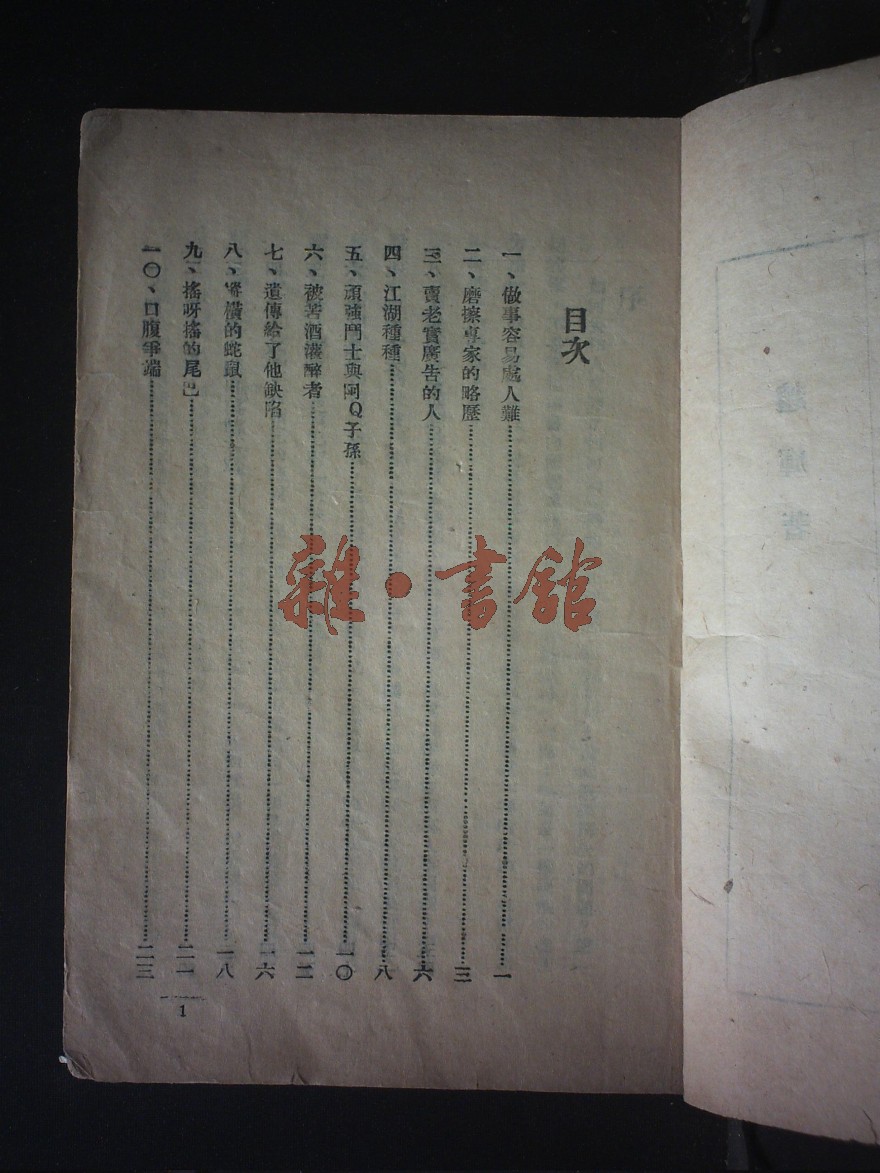 目次
一、做事容易處人難……一
二、磨擦專家的略歷……三
三、賣老實廣告的人……六
四、江湖種種……八
五、頑強鬥士與阿Q子孫……一〇
六、被苦酒灌醉者……一二
七、遺傳給了他缺陷……一六
八、橫的蛇鼠……一八
九、搖呀搖的尾巴……二一
一〇、口腹爭端……二三
1
雜·書館